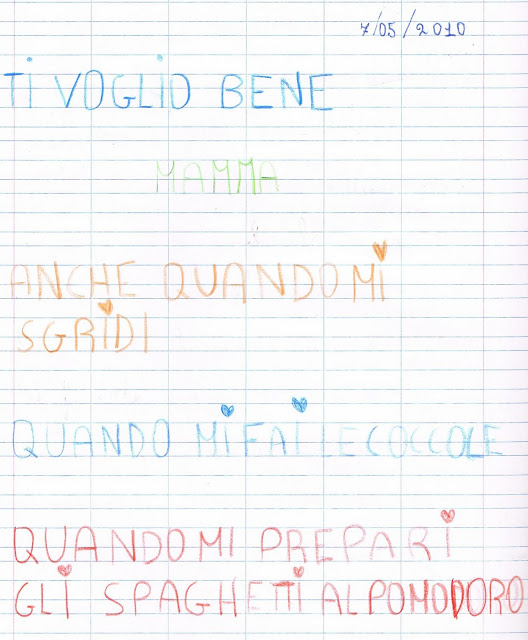 7/05/2010
TI VOGLIO BENE
MAMMA
ANCHE QUANDO MI
SGRIDI
QUANDO MI FAI LE COCCOLE
QUANDO MI PREPARI
GLI SPAGHETTI AL POMODORO